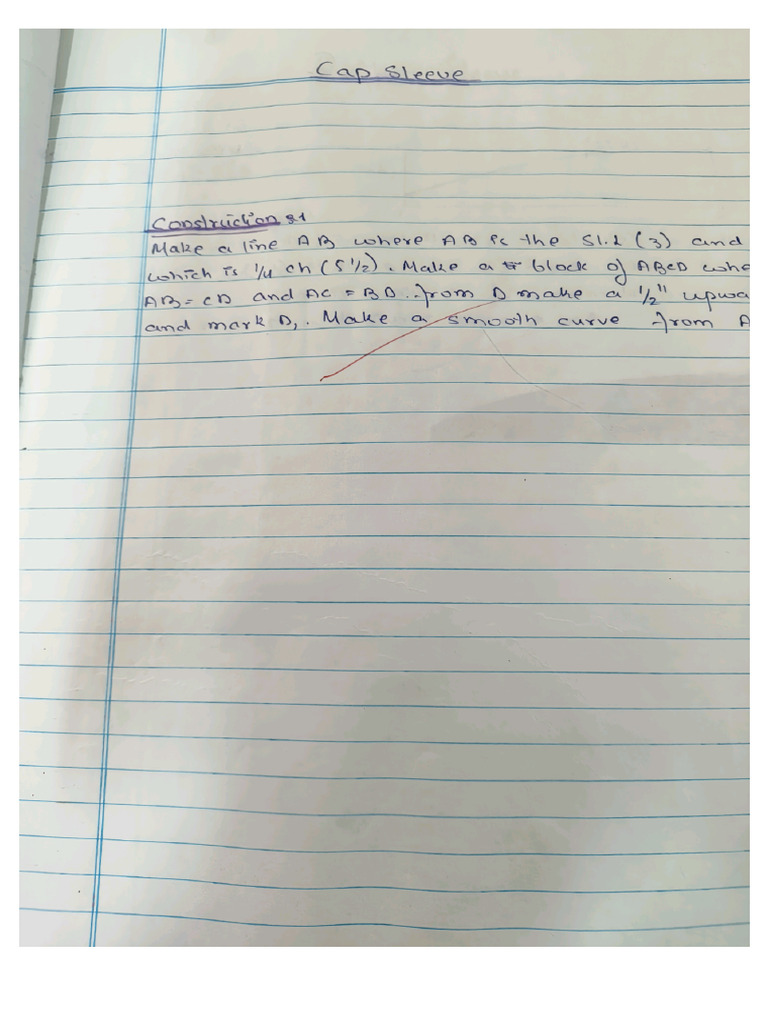 Cap Sleeve
Construction :-
Make a line AB where AB is the Sl.L (3) and
which is 1/4 ch (5 1/2). Make a block of ABCD whe
AB = CD and AC = BD. from D make a 1/2" upwa
and mark D1. Make a smooth curve from A